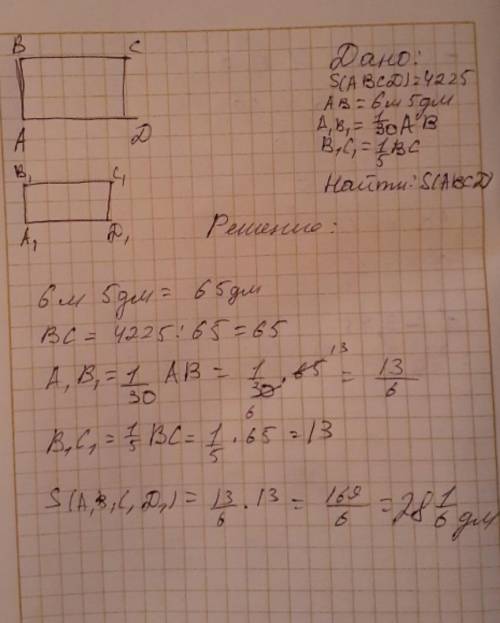 B C
A D
B₁ C₁
A₁ D₁
Дано:
S(ABCD)=4225
AB = 6м 5дм
A₁B₁ = 1/30 AB
B₁C₁ = 1/5 BC
Найти: S(ABCD)
Решение:
6м 5дм = 65дм
BC = 4225 : 65 = 65
A₁B₁ = 1/30 AB = 1/30 · 65 = 13/6
13
6
B₁C₁ = 1/5 BC = 1/5 · 65 = 13
S(A₁B₁C₁D₁) = 13/6 · 13 = 169/6 = 28 1/6 дм